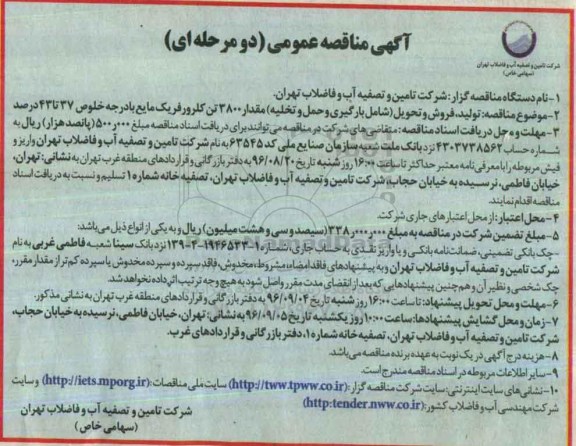 آگهی مناقصه عمومی (دو مرحله ای)
شرکت تامین و تصفیه آب و فاضلاب تهران
(سهامی خاص)
۱- نام دستگاه مناقصه گزار: شرکت تامین و تصفیه آب و فاضلاب تهران.
۲- موضوع مناقصه: تولید، فروش و تحویل (شامل بارگیری و حمل و تخلیه) مقدار ۳۸۰۰ تن کلرور فریک مایع با درجه خلوص ۳۷ تا ۴۳ درصد
۳- مهلت و محل دریافت اسناد مناقصه: متقاضی های شرکت در مناقصه می توانند برای دریافت اسناد مناقصه مبلغ ۵۰۰٫۰۰۰ (پانصد هزار) ریال به
شماره حساب ۴۳۰۳۷۳۸۵۶۲ نزد بانک ملت شعبه سازمان صنایع ملی کد ۶۳۵۴۵ به نام شرکت تامین و تصفیه آب و فاضلاب تهران واریز و
فیش مربوط را با معرفی نامه معتبر حداکثر تا ساعت ۱۶:۰۰ روز شنبه تاریخ ۹۶/۰۸/۲۰ به دفتر بازرگانی و قراردادهای منطقه غرب تهران به نشانی: تهران،
خیابان فاطمی، نرسیده به خیابان حجاب، شرکت تامین و تصفیه آب و فاضلاب تهران، تصفیه خانه شماره ۱ تسلیم و نسبت به دریافت اسناد
مناقصه اقدام نمایند.
۴- محل اعتبار: از محل اعتبارهای جاری شرکت.
۵- مبلغ تضمین شرکت در مناقصه به مبلغ ۳۳۸٫۰۰۰٫۰۰۰ (سیصد و سی و هشت میلیون) ریال و به یکی از انواع ذیل می باشد:
چک بانکی تضمینی، ضمانت نامه بانکی و یا واریز نقدی به حساب جاری، شماره نزد بانک سینا شعبه فاطمی غربی به نام
شرکت تامین و تصفیه آب و فاضلاب تهران و به پیشنهادهای فاقد امضاء، مشروط، مخدوش، فاقد سپرده و سپرده مخدوش یا سپرده کم تر از مقدار مقرر،
چک شخصی و نظیر آن و هم چنین پیشنهادهایی که بعد از انقضای مدت مقرر واصل شود به هیچ وجه ترتیب اثر داده نخواهد شد.
۶- مهلت و محل تحویل پیشنهاد: تا ساعت ۱۶:۰۰ روز شنبه تاریخ ۹۶/۰۹/۰۴ به دفتر بازرگانی و قراردادهای منطقه غرب تهران به نشانی مذکور.
۷- زمان و محل گشایش پیشنهادها: ساعت ۱۰:۰۰ روز یکشنبه تاریخ ۹۶/۰۹/۰۵ به نشانی: تهران، خیابان فاطمی، نرسیده به خیابان حجاب،
شرکت تامین و تصفیه آب و فاضلاب تهران، تصفیه خانه شماره ۱، دفتر بازرگانی و قراردادهای غرب.
۸- هزینه درج آگهی در یک نوبت به عهده برنده مناقصه می باشد.
۹- سایر اطلاعات مربوطه در اسناد مناقصه مندرج است.
۱۰- نشانی های سایت اینترنتی: سایت شرکت مناقصه گزار: (http://tww.tpww.co.ir) سایت ملی مناقصات: (http://iets.mporg.ir) و سایت
شرکت مهندسی آب و فاضلاب کشور: (http:tender.nww.co.ir)
شرکت تامین و تصفیه آب و فاضلاب تهران
(سهامی خاص)